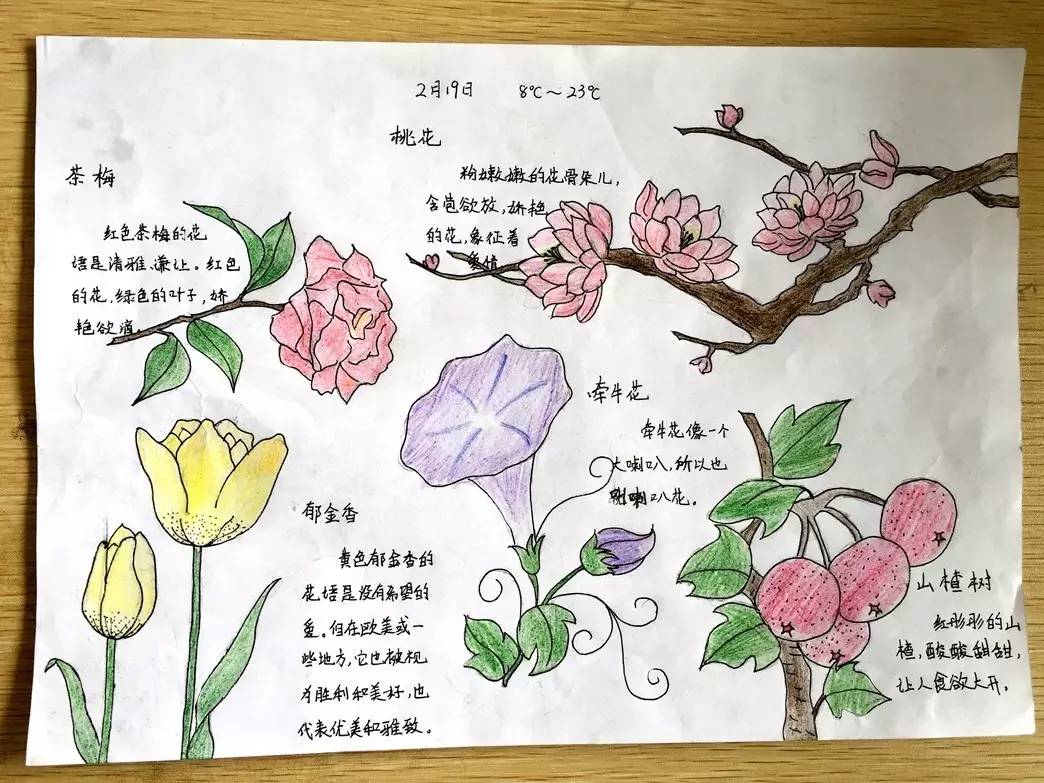 2月19日 8℃～23℃
桃花
粉嫩嫩的花骨朵儿，
含苞欲放，娇艳
的花，象征着
爱情
茶梅
红色茶梅的花
语是清雅、谦让。红色
的花，绿色的叶子，娇
艳欲滴。
牵牛花
牵牛花像一个
大喇叭，所以也
喇叭花。
郁金香
黄色郁金香的
花语是没有希望的
爱。但在欧美或一
些地方，它也被视
为胜利和美好，也
代表优美和雅致。
山楂树
红彤彤的山
楂，酸酸甜甜，
让人食欲大开。